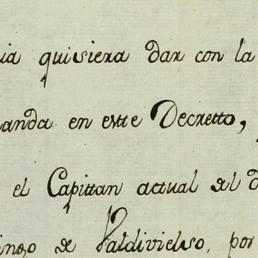 ia quisiera dar con la
anda en este Decretto,
el Capittan actual del d
ingo de Valdivielso, por